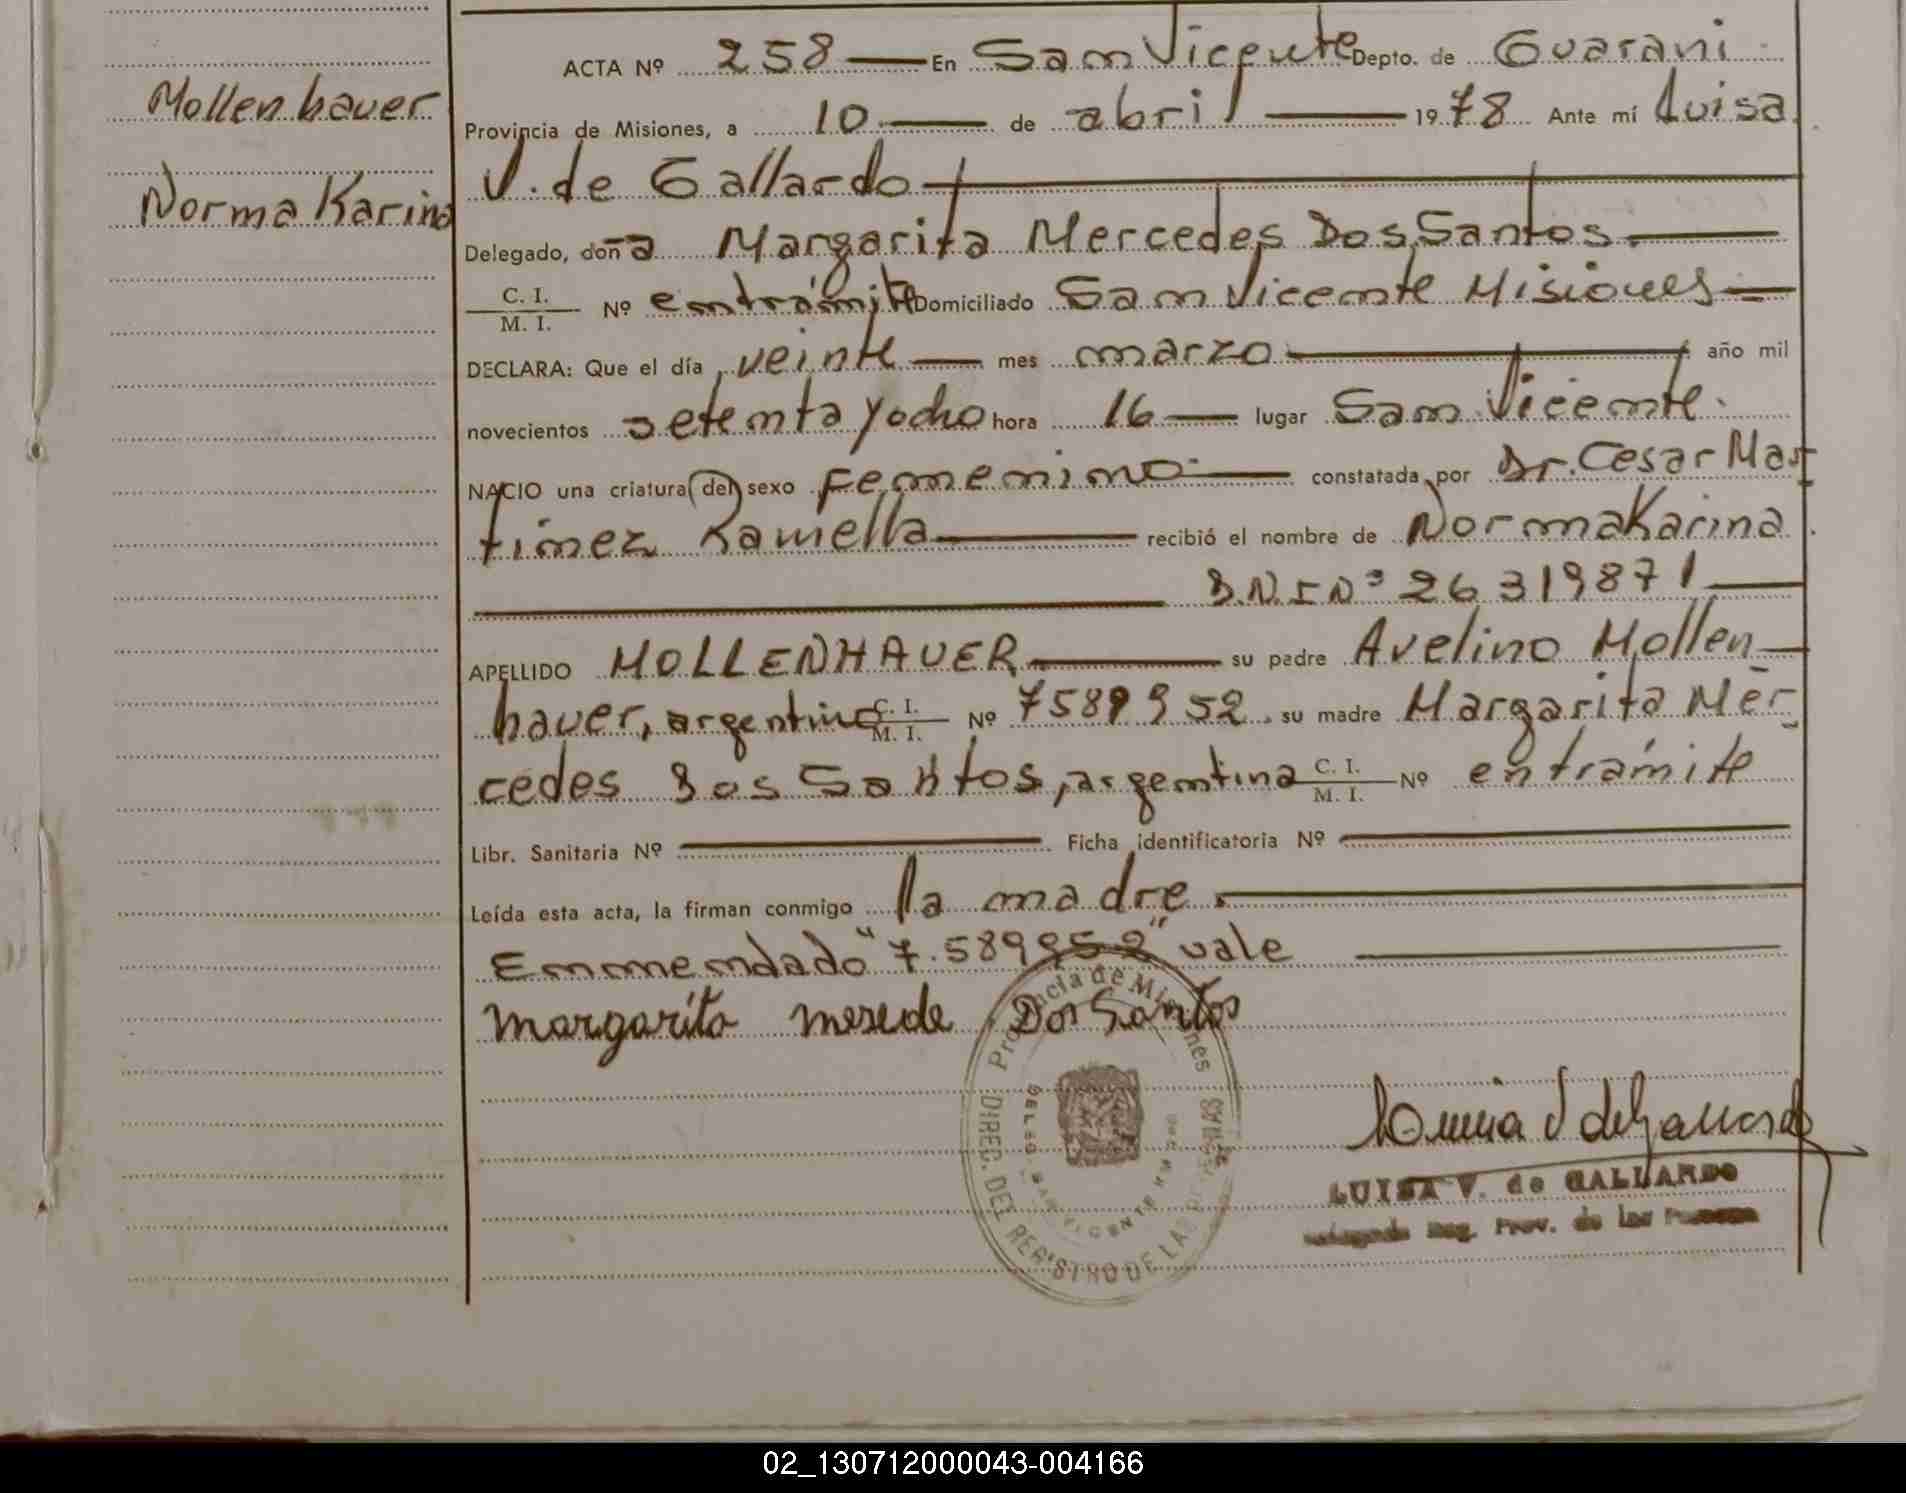 Mollenhauer
Norma Karina
ACTA Nº 258 — En San Vicente Depto. de Guarani
Provincia de Misiones, a 10 — de abril — 1978 Ante mí Luisa
V. de Gallardo —
Delegado, doña Margarita Mercedes Dos Santos. —
C. I. / M. I. Nº en trámite Domiciliado San Vicente Misiones —
DECLARA: Que el día veinte — mes marzo — año mil
novecientos setenta y ocho hora 16 — lugar San Vicente.
NACIO una criatura del sexo femenino — constatada por Dr. Cesar Mar
tinez Ramella — recibió el nombre de Norma Karina
— D.N.I Nº 26 319871 —
APELLIDO MOLLENHAUER — su padre Avelino Mollen-
hauer, argentino C. I. / M. I. Nº 7589952 su madre Margarita Mer-
cedes Dos Santos, argentina C. I. / M. I. Nº en trámite
Libr. Sanitaria Nº — Ficha identificatoria Nº —
Leída esta acta, la firman conmigo la madre. —
Enmendado "7.589952" vale —
Margarita mersede Dos Santos
Provincia de Misiones
DIREC. DEL REGISTRO DE LAS
SAN VICENTE
LUISA V. de GALLARDO
Reg. Prov. de las
02_130712000043-004166